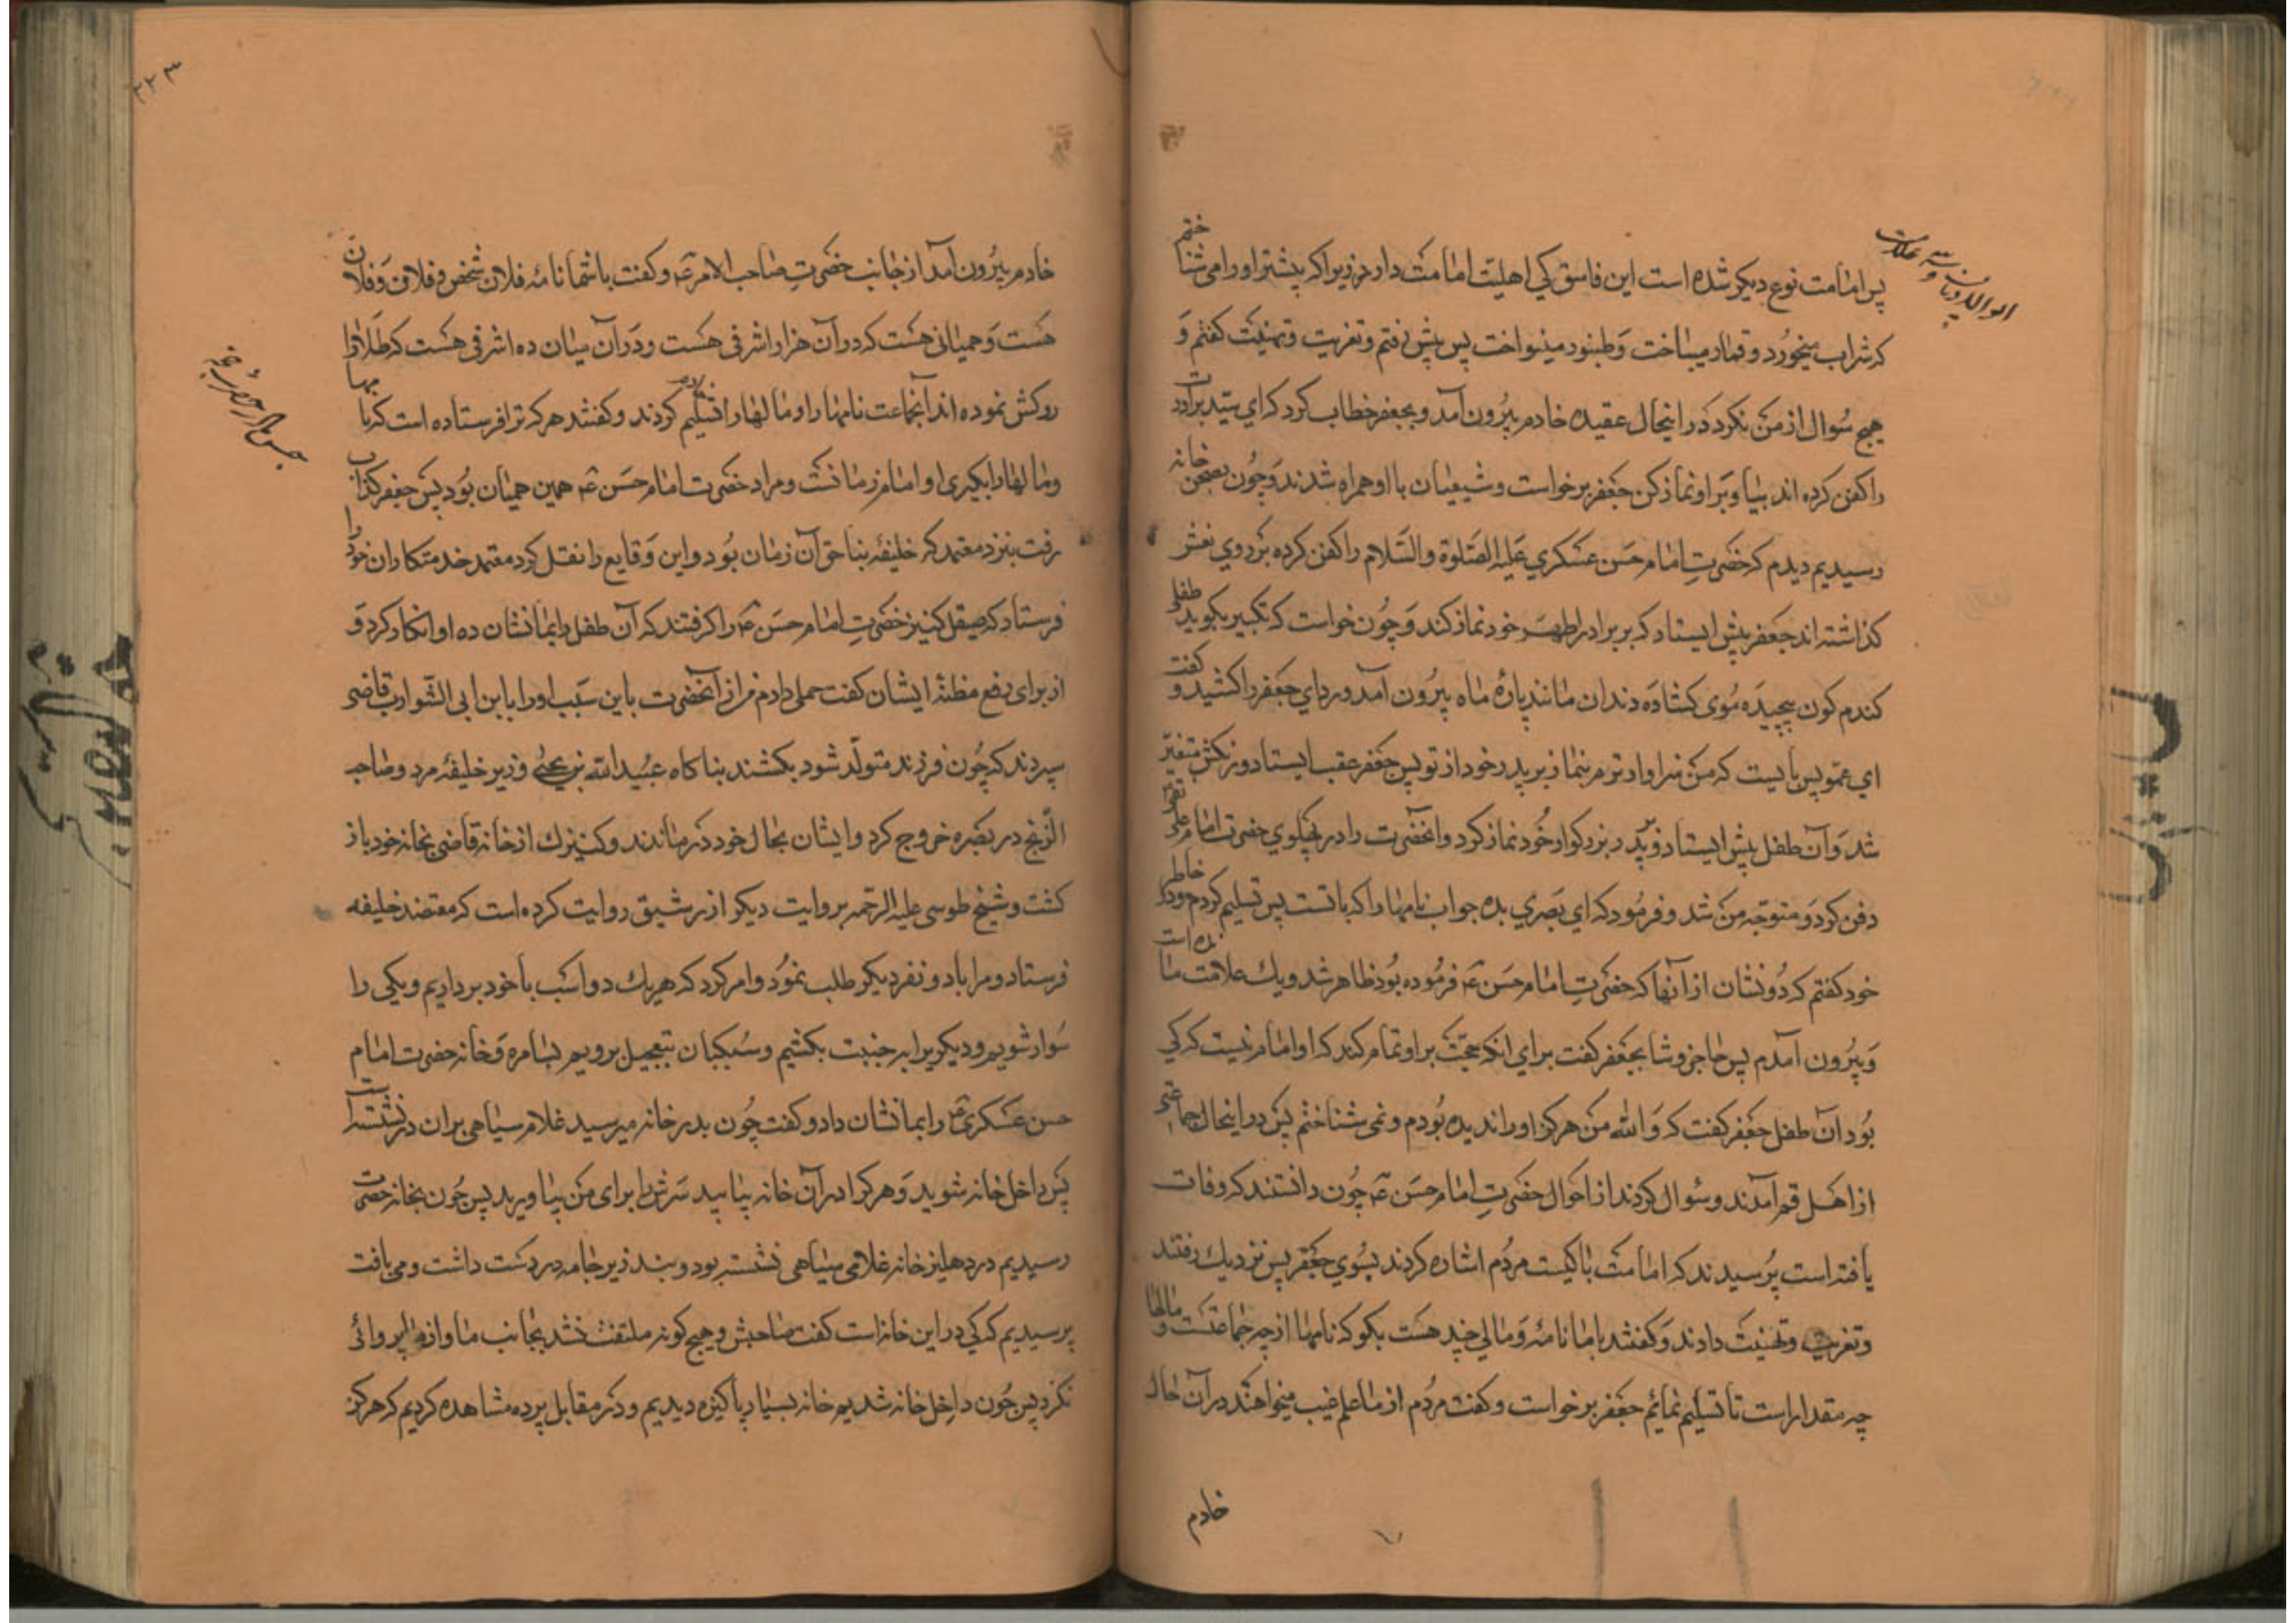 پس امامت نوع دیکر شده است این فاسق کی اهلیت امامت دارد زیرا که پیشتر او را می شناختم
که شراب میخورد و قمار میباخت و طنبور مینواخت پس پیش رفتم و تعزیت و تهنیت کفتم و
هیچ سوال از من نکرد در اینحال عقیده خادم بیرون آمد و بجعفر خطاب کرد که ای سید برادرت
را کفن کرده اند بیا و بر او نماز کن جعفر برخواست و شیعیان با او همراه شدند و چون بصحن خانه
رسیدیم دیدم که حضرت امام حسن عسکری علیه الصلوة والسلام را کفن کرده بر روی نعش
کذاشته اند جعفر پیش ایستاد که بر برادر اطهر خود نماز کند و چون خواست که تکبیر بکوید طفل
کندم کون پیچیده موی کشاده دندان مانند پارهٔ ماه بیرون آمد و ردای جعفر را کشید و کفت
ای عمو پس بایست که من سزاوار ترم بنماز بر پدر خود از تو پس جعفر عقب ایستاد و رنکش متغیر
شد و آن طفل پیش ایستاد و بر پدر بزرکوار خود نماز کرد و انحضرت را در پهلوی حضرت امام علی نقی
دفن کرد و متوجه من شد و فرمود که ای بصری بده جواب نامها را که با تست پس تسلیم کردم و در خاطر
خود کفتم که دو نشان از آنها که حضرت امام حسن ع فرموده بود ظاهر شد و یک علامت مانده است
و بیرون آمدم پس حاجز وشا بجعفر کفت برای انکه حجت بر او تمام کند که او امام نیست که کی
بود آن طفل جعفر کفت که والله من هرکز او را ندیده بودم و نمی شناختم پس در اینحال جماعتی
از اهل قم آمدند و سوال کردند از احوال حضرت امام حسن ع چون دانستند که وفات
یافته است پرسیدند که امامت با کیست مردم اشاره کردند بسوی جعفر پس نزدیک رفتند
و تعزیت و تهنیت دادند و کفتند با ما نامه و مالی چند هست بکو که نامها از چه جماعتست و مالها
چه مقدار است تا تسلیم نمائیم جعفر برخواست و کفت مردم از ما علم غیب میخواهند در آن حال
خادم
۲۲۳
خادم بیرون آمد از جانب حضرت صاحب الامر ع و کفت با شما نامه فلان شخص و فلان و فلان
هست و همیانی هست که در آن هزار اشرفی هست و در آن میان ده اشرفی هست که طلا را
روکش نموده اند آنجماعت نامها را و مالها را تسلیم کردند و کفتند هر که ترا فرستاده است که نامها
و مالها را بکیری او امام زمانست و مراد حضرت امام حسن ع همین همیان بود پس جعفر کذاب
رفت بنزد معتمد که خلیفه بناحق آن زمان بود و این وقایع را نقل کرد معتمد خدمتکاران خود را
فرستاد که صیقل کنیز حضرت امام حسن ع را کرفتند که آن طفل را بما نشان ده او انکار کرد و
از برای رفع مظنهٔ ایشان کفت حملی دارم من از آنحضرت باین سبب او را بابن ابی الشوارب قاضی
سپردند که چون فرزند متولد شود بکشند بناکاه عبیدالله بن یحیی وزیر خلیفه مرد و صاحب
الزنج در بصره خروج کرد و ایشان بحال خود درماندند و کنیزک از خانه قاضی بخانه خود باز
کشت و شیخ طوسی علیه الرحمه بروایت دیکر از رشیق روایت کرده است که معتضد خلیفه
فرستاد و مرا با دو نفر دیکر طلب نمود و امر کرد که هریک دو اسب با خود برداریم و یکی را
سوار شویم و دیکریرا بر جنیبت بکشیم و سبکبان بتعجیل برویم بسامره و خانه حضرت امام
حسن عسکری ع را بما نشان داد و کفت چون بدر خانه میرسید غلام سیاهی بران در نشسته است
پس داخل خانه شوید و هر کرا در آن خانه بیابید سرش را برای من بیاورید پس چون بخانه حضرت
رسیدیم در دهلیز خانه غلامی سیاهی نشسته بود و بند زیر جامه در دست داشت و می بافت
پرسیدیم که کی در این خانه است کفت صاحبش و هیچ کونه ملتفت نشد بجانب ما و از ما پروائی
نکرد پس چون داخل خانه شدیم خانه بسیار پاکیزه دیدیم و در مقابل پرده مشاهده کردیم که هرکز